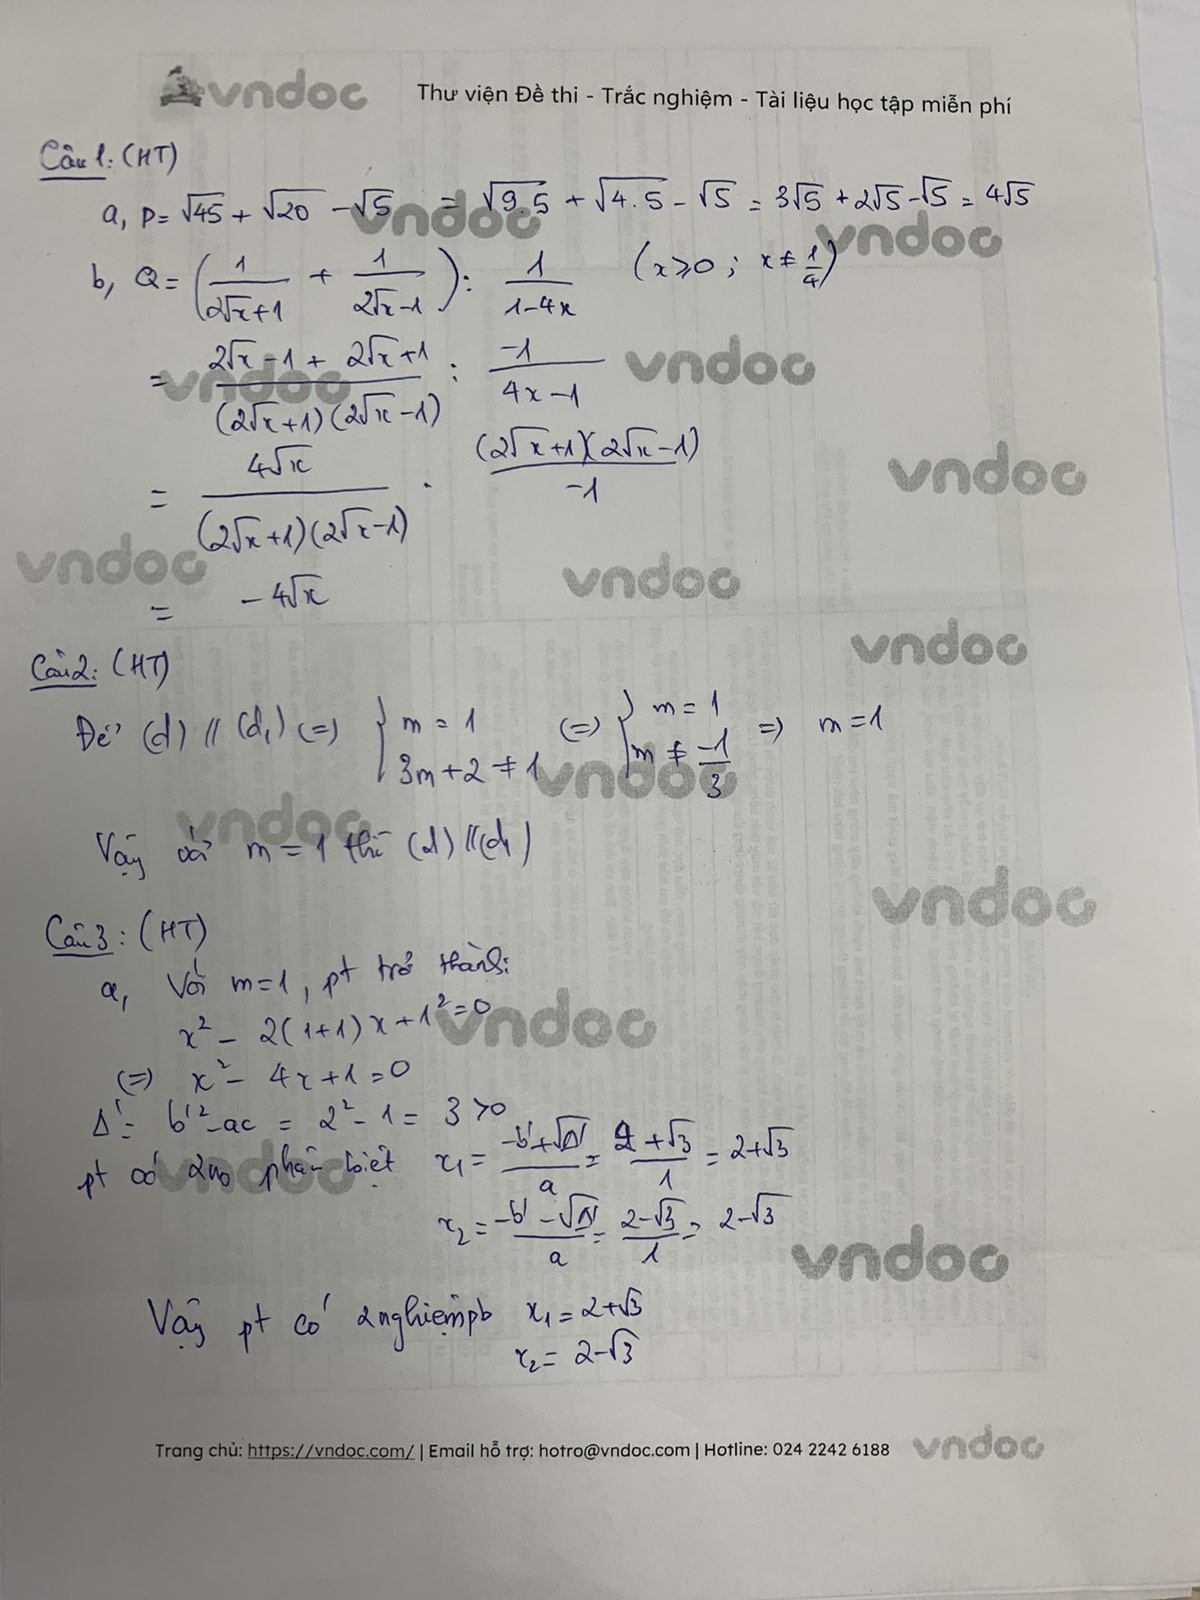 vndoc Thư viện Đề thi - Trắc nghiệm - Tài liệu học tập miễn phí
Câu 1: (HT)
a, P = √45 + √20 - √5 = √9.5 + √4.5 - √5 = 3√5 + 2√5 - √5 = 4√5
b, Q = (1/(2√x+1) + 1/(2√x-1)) : 1/(1-4x) (x ≥ 0 ; x ≠ 1/4)
= (2√x-1 + 2√x+1)/((2√x+1)(2√x-1)) : -1/(4x-1)
= 4√x/((2√x+1)(2√x-1)) . (2√x+1)(2√x-1)/-1
= -4√x
Câu 2: (HT)
Để (d) // (d₁) (=) { m = 1 ; 3m+2 ≠ 1 (=) { m = 1 ; m ≠ -1/3 => m = 1
Vậy với m = 1 thì (d) // (d₁)
Câu 3: (HT)
a, Với m=1, pt trở thành:
x² - 2(1+1)x + 1² = 0
(=) x² - 4x + 1 = 0
Δ' = b'² - ac = 2² - 1 = 3 > 0
pt có 2 no phân biệt x₁ = (-b' + √Δ')/a = (2+√3)/1 = 2+√3
x₂ = (-b' - √Δ')/a = (2-√3)/1 = 2-√3
Vậy pt có 2 nghiệm pb x₁ = 2+√3
x₂ = 2-√3
Trang chủ: https://vndoc.com/ | Email hỗ trợ: hotro@vndoc.com | Hotline: 024 2242 6188 vndoc